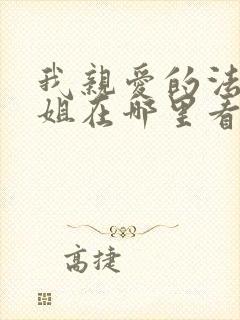 我親愛的法
姐在哪里看
高捷